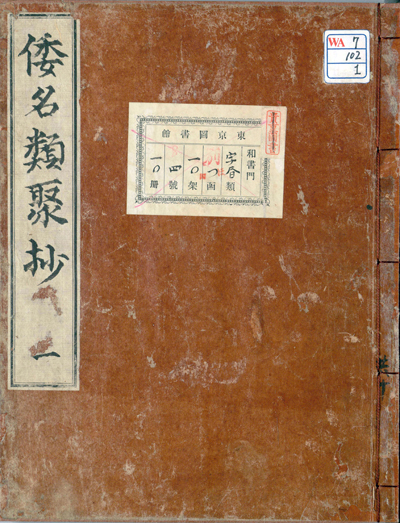 倭名類聚抄 一
WA 7
102
1
東京圖書館
和書門
字書類
函
一〇架
四號
一〇冊